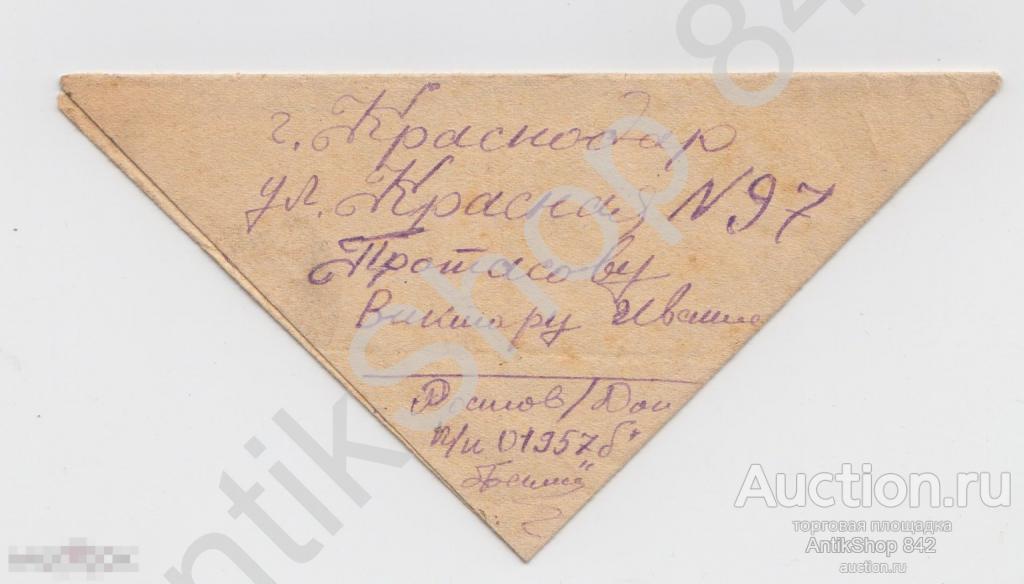 г. Краснодар
ул. Красная N 97
Протасову
Виктору Ивано
Ростов/Дон
п/п 01957 б"
Auction.ru
торговая площадка
AntikShop 842
auction.ru
antikshop 842